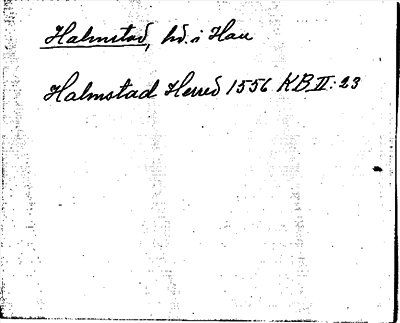 Halmstad, hd. i Hall
Halmstad Herred 1556 KB II: 23